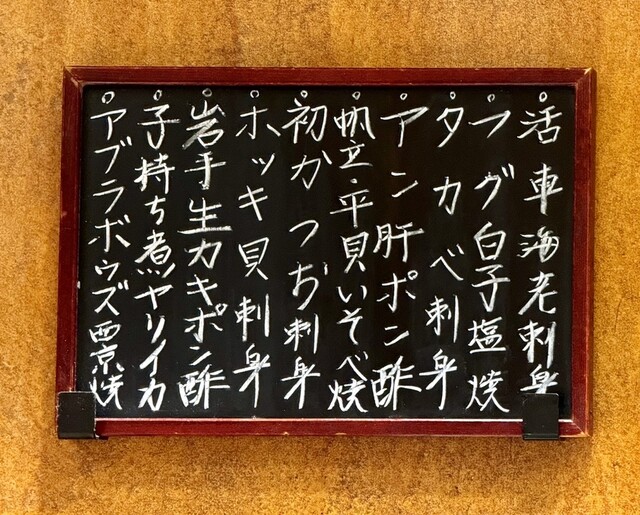 ○活車海老刺身
○フグ白子塩焼
○タカベ刺身
○アン肝ポン酢
○帆立・平貝いそべ焼
○初かつお刺身
○ホッキ貝刺身
○岩手生カキポン酢
○子持ち煮ヤリイカ
○アブラボウズ西京焼